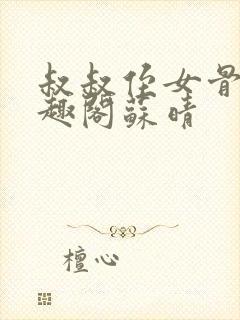 叔叔侄女骨
趣閣蘇晴
檀心